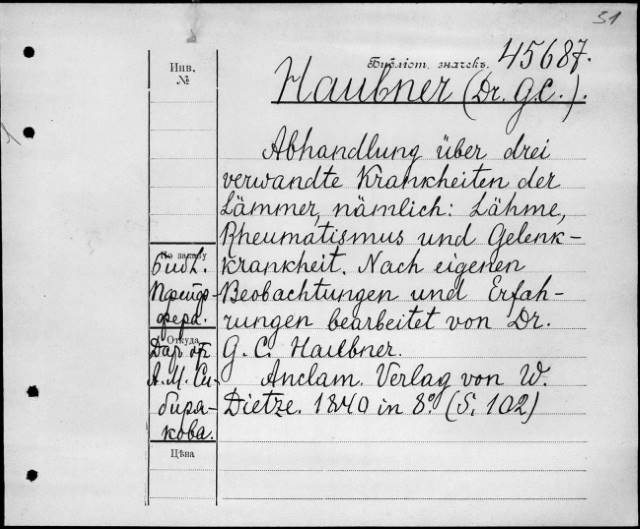 51
Инв.
№
Библіот. значекъ. 45687.
Haubner (Dr. G.C.).
Abhandlung über drei
verwandte Krankheiten der
Lämmer, nämlich: Lähme,
Rheumatismus und Gelenk-
krankheit. Nach eigenen
Beobachtungen und Erfah-
rungen bearbeitet von Dr.
G. C. Haubner.
Anclam. Verlag von W.
Dietze. 1840 in 8º. (S. 102)
По шкафу
библ.
Пфейф-
фера.
Откуда
Даръ отъ
А. М. Си-
биря-
кова.
Цѣна